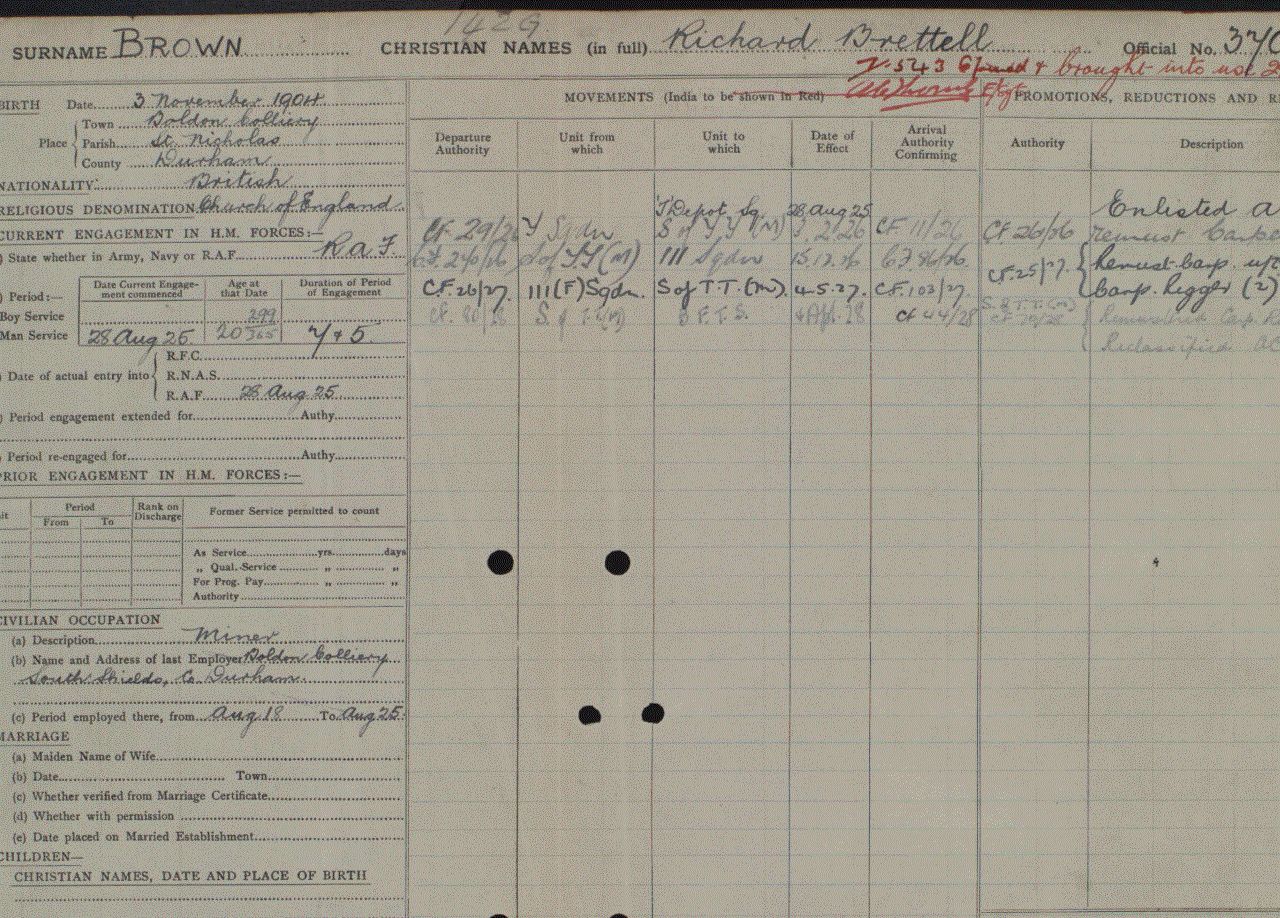 1429
SURNAME BROWN CHRISTIAN NAMES (in full) Richard Brettell Official No. 370
V.543 & brought into use
BIRTH Date 3 November 1904
MOVEMENTS (India to be shown in Red)
PROMOTIONS, REDUCTIONS AND RE
Place
Town Boldon Colliery
Parish St. Nicholas
County Durham
NATIONALITY: British
RELIGIOUS DENOMINATION Church of England
CURRENT ENGAGEMENT IN H.M. FORCES:—
) State whether in Army, Navy or R.A.F. R.A.F.
) Period:—
Date Current Engagement commenced
Age at that Date
Duration of Period of Engagement
Boy Service
Man Service 28 Aug 25. 20 299/365 7 & 5
) Date of actual entry into
R.F.C.
R.N.A.S.
R.A.F. 28 Aug 25
) Period engagement extended for Authy.
) Period re-engaged for Authy.
PRIOR ENGAGEMENT IN H.M. FORCES:—
it
Period
From To
Rank on Discharge
Former Service permitted to count
As Service yrs. days
„ Qual.-Service „ „
For Prog. Pay „ „
Authority
CIVILIAN OCCUPATION
(a) Description Miner
(b) Name and Address of last Employer Boldon Colliery
South Shields, Co. Durham.
(c) Period employed there, from Aug 18 To Aug 25.
MARRIAGE
(a) Maiden Name of Wife
(b) Date Town
(c) Whether verified from Marriage Certificate
(d) Whether with permission
(e) Date placed on Married Establishment
CHILDREN—
CHRISTIAN NAMES, DATE AND PLACE OF BIRTH
Departure Authority
Unit from which
Unit to which
Date of Effect
Arrival Authority Confirming
Depot 28 Aug 25
CF 29/26 Sqdn S of T.T (M) 3.2.26 CF 11/26
S of T.T (M) 111 Sqdn 15.12.26 CF 86/26.
CF. 26/27. 111 (F) Sqdn. S of T.T. (M). 4.5.27. CF. 102/27.
S of T.T (M) CF 44/28
Authority
Description
Enlisted a
CF 26/26 remust Carpe
CF.25/27. Remust Carp.
Carp. Rigger (2)
S of T.T. (M)
Reclassified AC